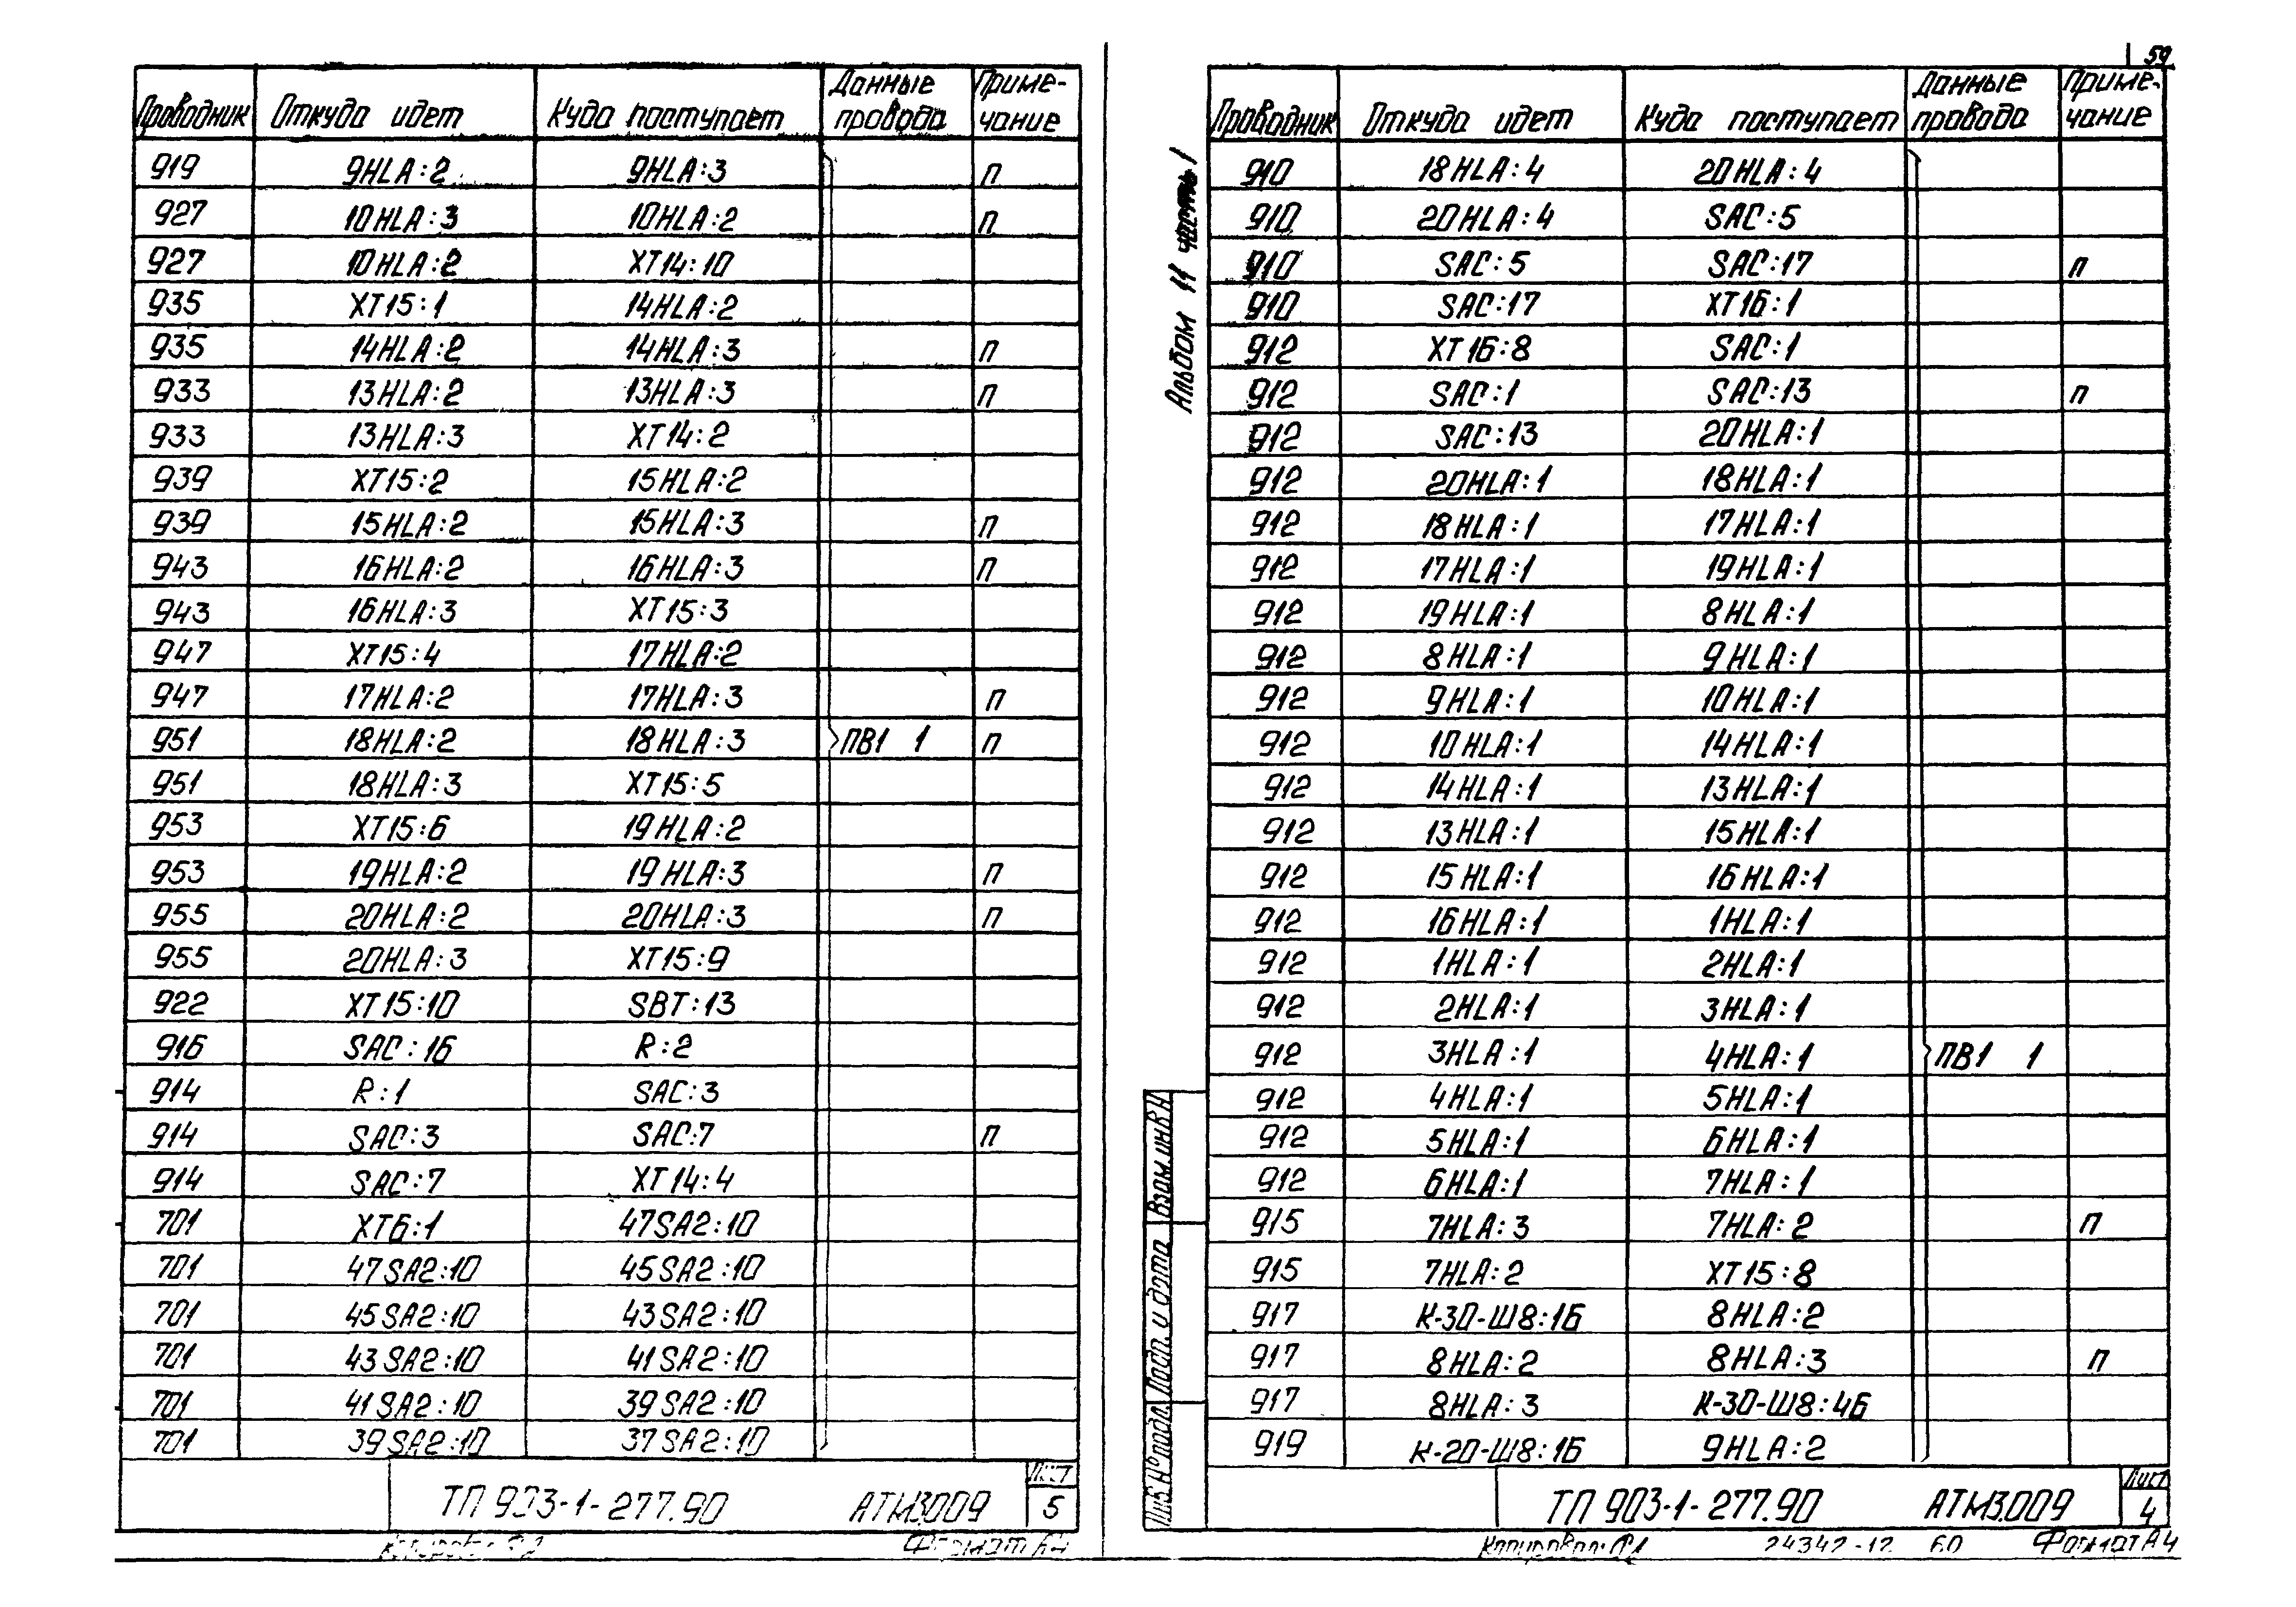 Проводник Откуда идет Куда поступает Данные провода Примечание
919 9HLA:2 9HLA:3 п
927 10HLA:3 10HLA:2 п
927 10HLA:2 XT14:10
935 XT15:1 14HLA:2
935 14HLA:2 14HLA:3 п
933 13HLA:2 13HLA:3 п
933 13HLA:3 XT14:2
939 XT15:2 15HLA:2
939 15HLA:2 15HLA:3 п
943 16HLA:2 16HLA:3 п
943 16HLA:3 XT15:3
947 XT15:4 17HLA:2
947 17HLA:2 17HLA:3 п
951 18HLA:2 18HLA:3 ПВ1 1 п
951 18HLA:3 XT15:5
953 XT15:6 19HLA:2
953 19HLA:2 19HLA:3 п
955 20HLA:2 20HLA:3 п
955 20HLA:3 XT15:9
922 XT15:10 SBT:13
916 SAC:16 R:2
914 R:1 SAC:3
914 SAC:3 SAC:7 п
914 SAC:7 XT14:4
701 XT6:1 47SA2:10
701 47SA2:10 45SA2:10
701 45SA2:10 43SA2:10
701 43SA2:10 41SA2:10
701 41SA2:10 39SA2:10
701 39SA2:10 37SA2:10
ТП 903-1-277.90 АТМ3.009 Лист 5
Формат А4
59
Альбом 11 часть 1
Проводник Откуда идет Куда поступает Данные провода Примечание
910 18HLA:4 20HLA:4
910 20HLA:4 SAC:5
910 SAC:5 SAC:17 п
910 SAC:17 XT16:1
912 XT16:8 SAC:1
912 SAC:1 SAC:13 п
912 SAC:13 20HLA:1
912 20HLA:1 18HLA:1
912 18HLA:1 17HLA:1
912 17HLA:1 19HLA:1
912 19HLA:1 8HLA:1
912 8HLA:1 9HLA:1
912 9HLA:1 10HLA:1
912 10HLA:1 14HLA:1
912 14HLA:1 13HLA:1
912 13HLA:1 15HLA:1
912 15HLA:1 16HLA:1
912 16HLA:1 1HLA:1
912 1HLA:1 2HLA:1
912 2HLA:1 3HLA:1
912 3HLA:1 4HLA:1 ПВ1 1
912 4HLA:1 5HLA:1
912 5HLA:1 6HLA:1
912 6HLA:1 7HLA:1
915 7HLA:3 7HLA:2 п
915 7HLA:2 XT15:8
917 К-30-Ш8:1Б 8HLA:2
917 8HLA:2 8HLA:3 п
917 8HLA:3 К-30-Ш8:4Б
919 К-20-Ш8:1Б 9HLA:2
Инв.№ подл. Подп. и дата Взам.инв.№
ТП 903-1-277.90 АТМ3.009 Лист 4
Копировал: 24342-12 60 Формат А4